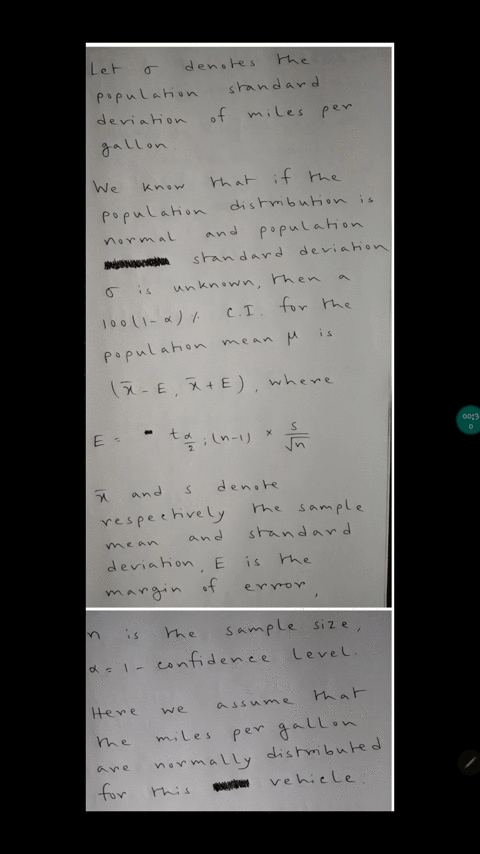 Let σ denotes the
population standard
deviation of miles per
gallon.
We know that if the
population distribution is
normal and population
standard deviation
σ is unknown, then a
100(1-α)% C.I. for the
population mean μ is
(x̄ - E, x̄ + E), where
E = t α/2; (n-1) × s/√n
x̄ and s denote
respectively the sample
mean and standard
deviation, E is the
margin of error,
n is the sample size,
α = 1 - confidence level.
Here we assume that
the miles per gallon
are normally distributed
for this vehicle.
00:30